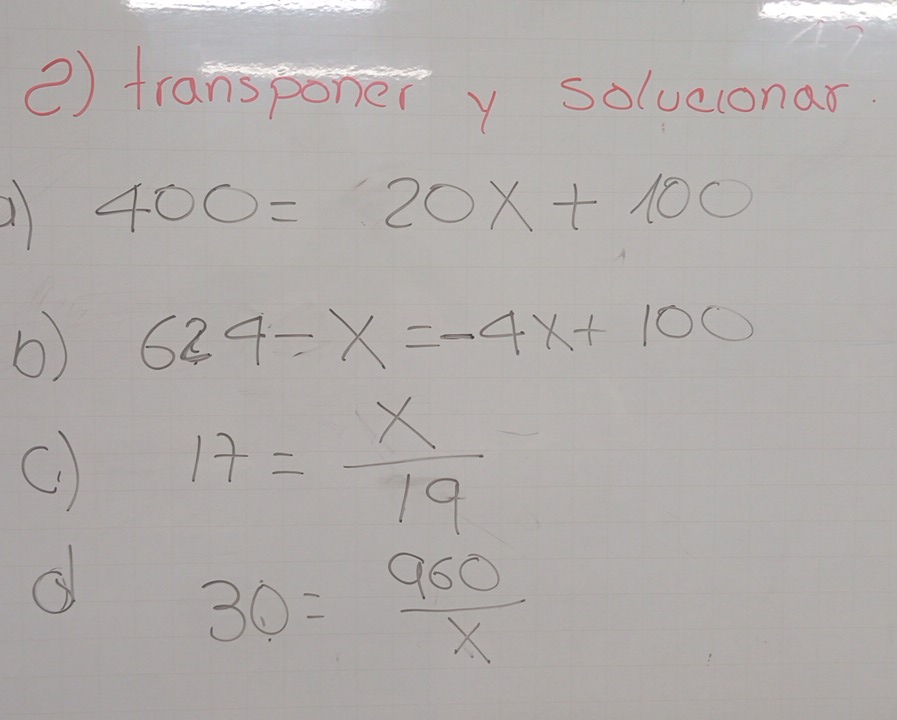 2) transponer y solucionar.
a) 400 = 20X + 100
b) 624 - X = -4X + 100
c) 17 = X / 19
d 30 = 960 / X